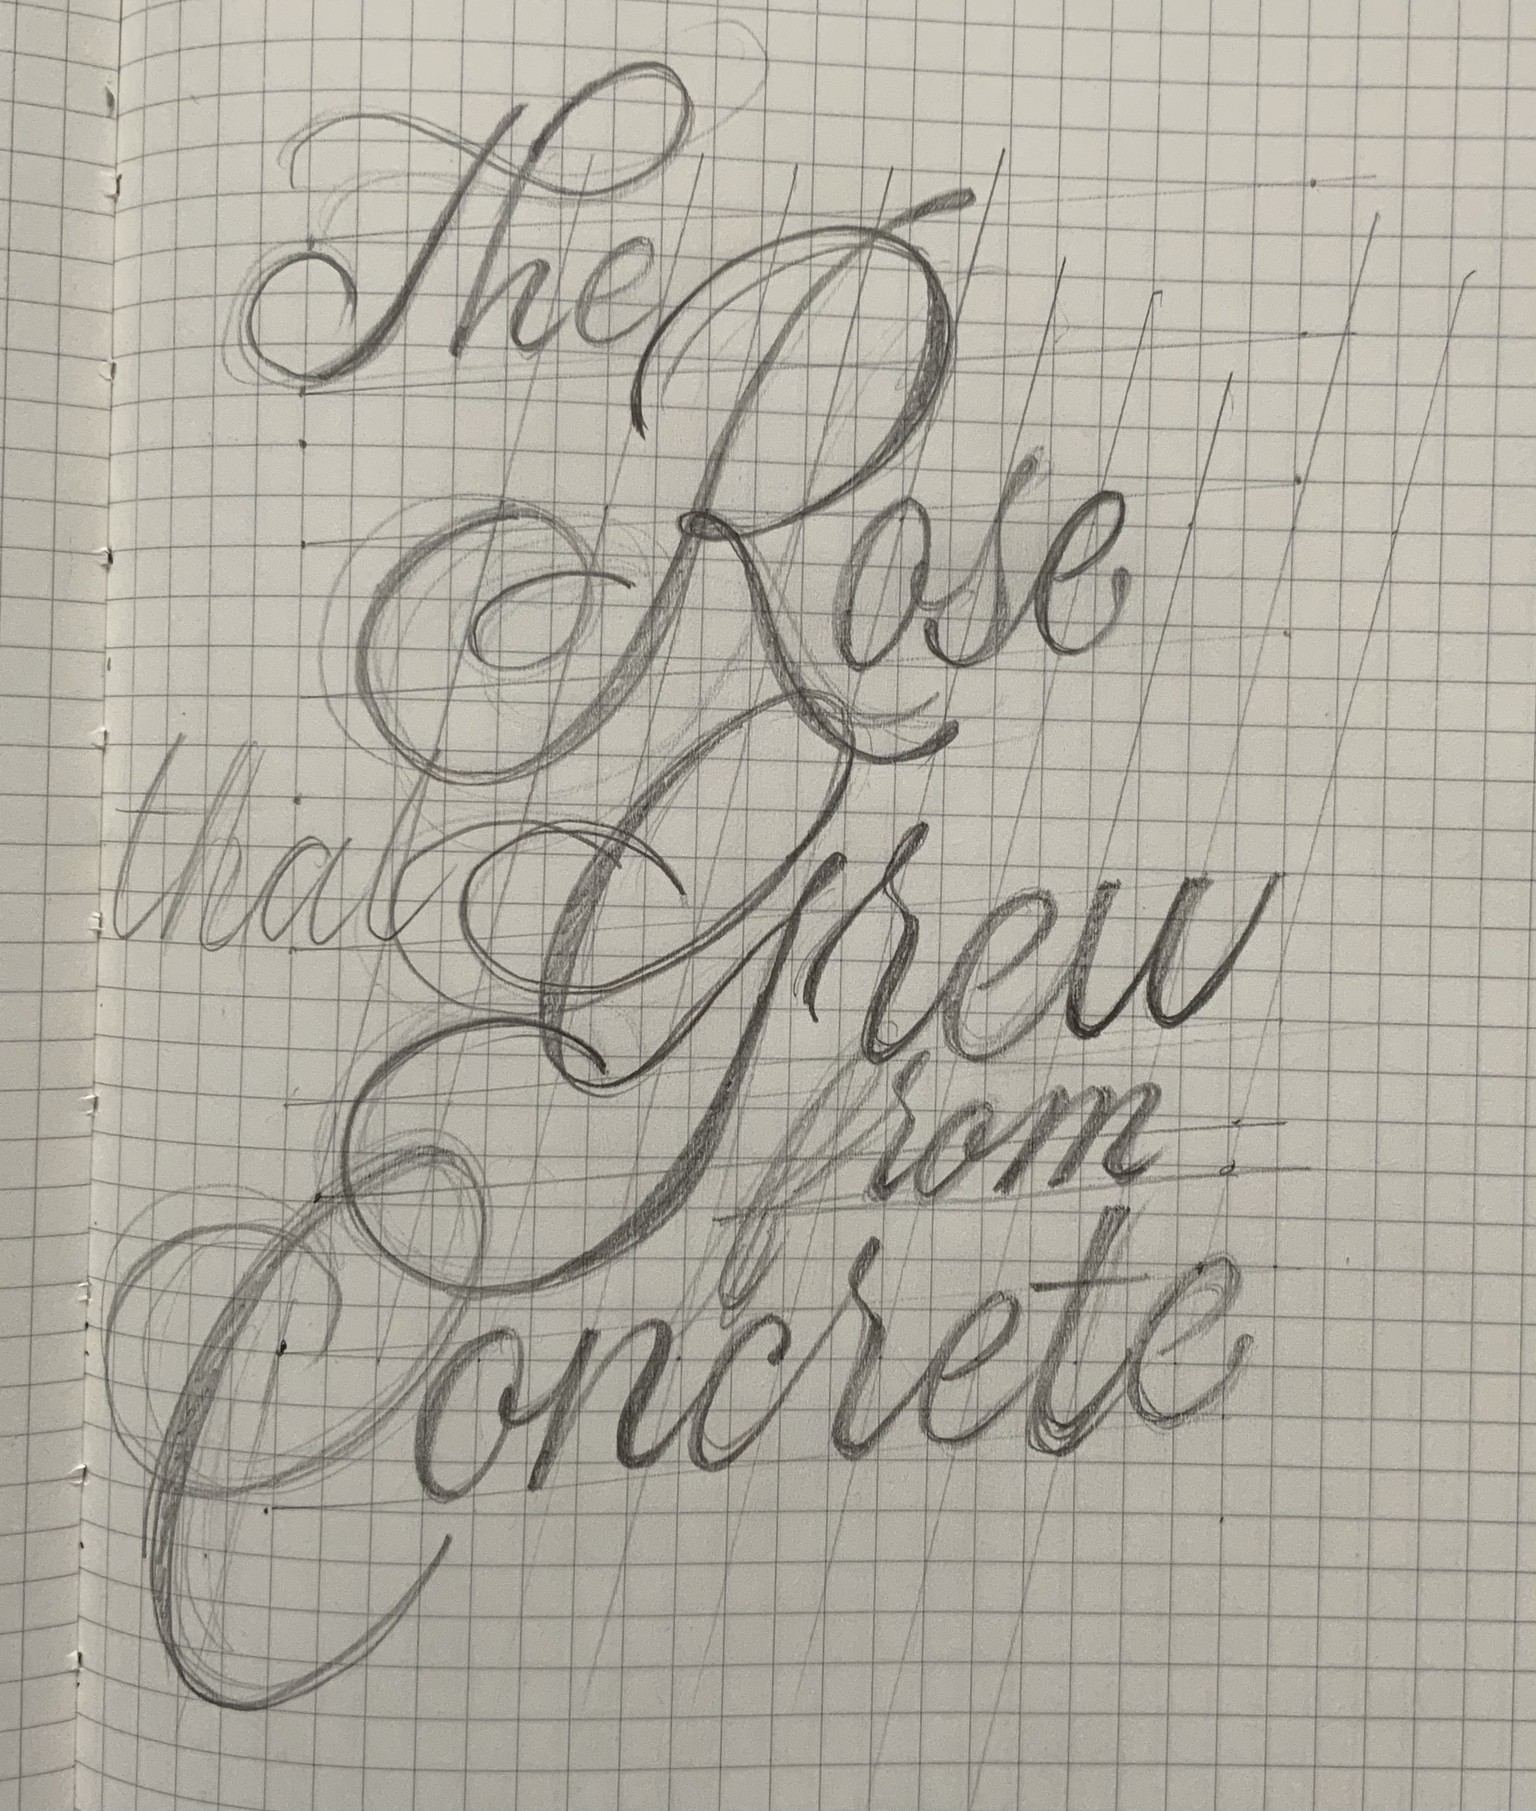 The
Rose
that Grew
from
Concrete